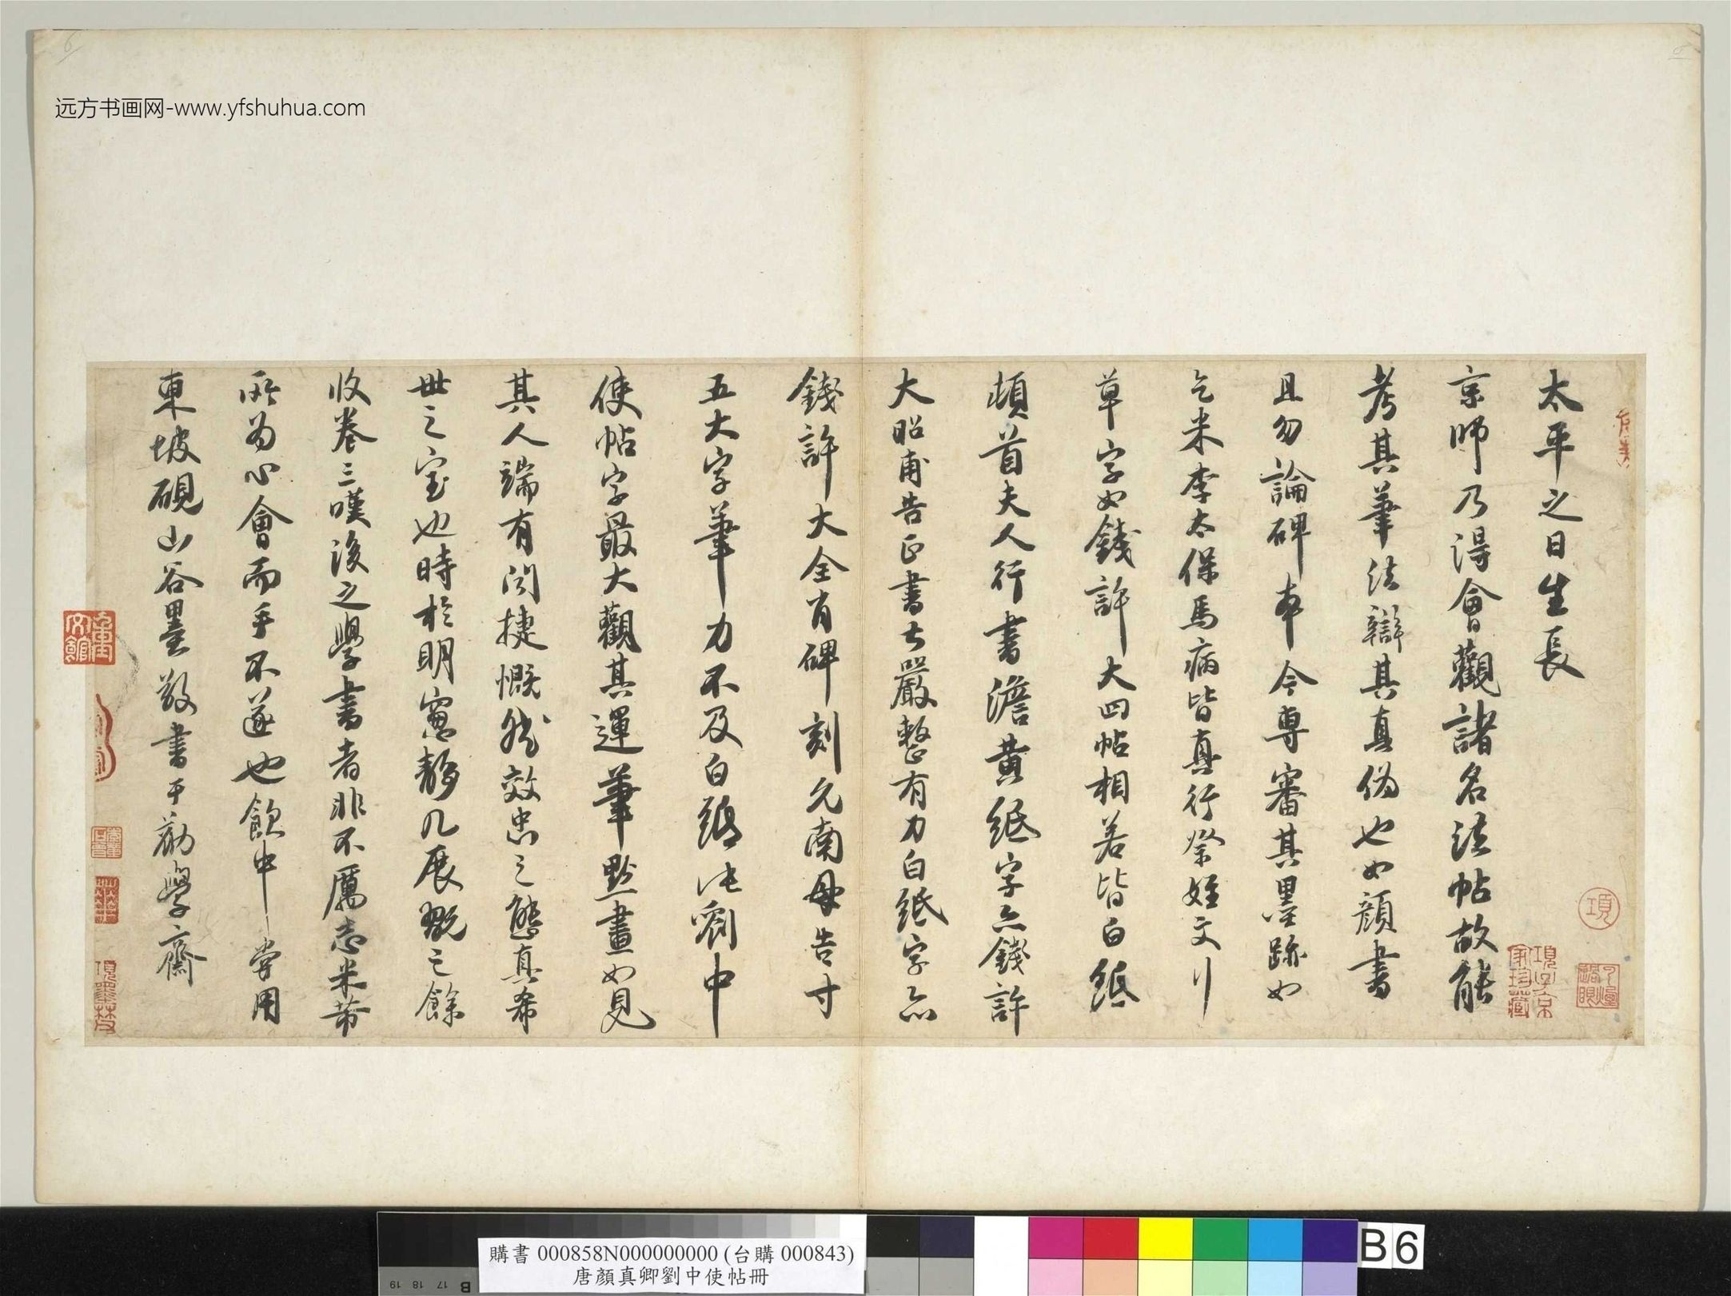 远方书画网-www.yfshuhua.com
太平之日生長
京師乃得會觀諸名法帖故能
考其筆法辯其真偽也如顏書
且勿論碑本今專審其墨跡如
乞米李太保馬病皆真行祭姪文
草字如錢許大四帖相若皆白紙
頓首夫人行書澹黃紙字亦錢許
大昭甫告正書嚴整有力白紙字亦
錢許大全肖碑刻允南母告寸
五大字筆力不及白紙劉中
使帖字最大觀其運筆點畫如見
其人端有聞捷慨然效忠之態真希
世之宝也時於明窓靜几展玩之餘
收卷三嘆後之學書者非不厲志米芾
所为心會而手不逮也飲中嘗用
東坡硯山谷墨敬書于勤學齋
項
項子京家珍藏
項墨林
購書 000858N000000000 (台購 000843)
唐顏真卿劉中使帖冊
B6